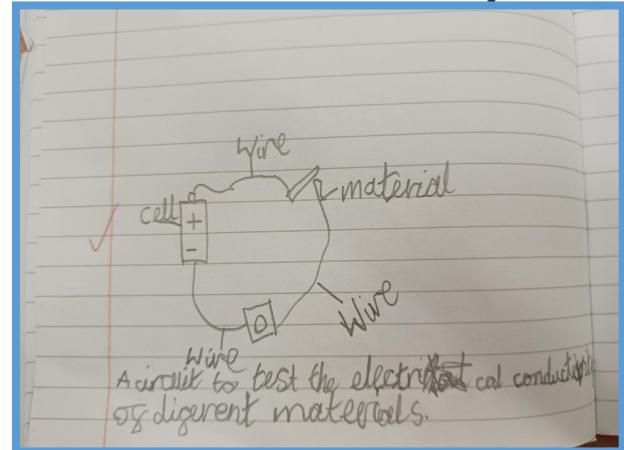 Wire
material
cell
+
-
Wire
Wire
A circuit to test the electrical conduct
of diferent materials.